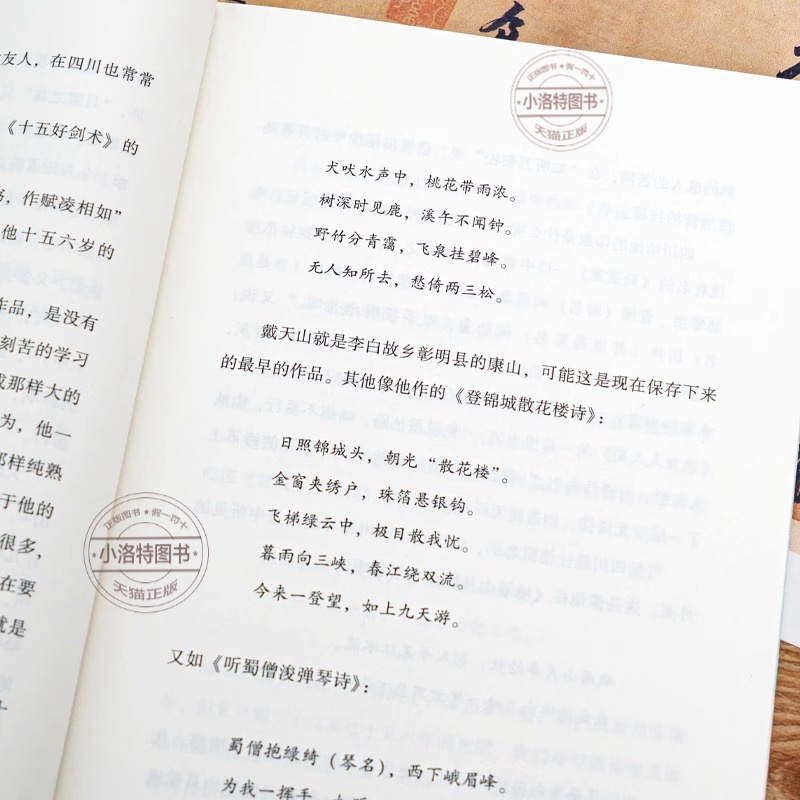 友人，在四川也常常
《十五好剑术》的
，作赋凌相如”
他十五六岁的
作品，是没有
刻苦的学习
成那样大的
为，他一
那样纯熟
于他的
很多，
在要
就是
犬吠水声中，桃花带雨浓。
树深时见鹿，溪午不闻钟。
野竹分青霭，飞泉挂碧峰。
无人知所去，愁倚两三松。
戴天山就是李白故乡彰明县的康山，可能这是现在保存下来
的最早的作品。其他像他作的《登锦城散花楼诗》：
日照锦城头，朝光“散花楼”。
金窗夹绣户，珠箔悬银钩。
飞梯绿云中，极目散我忧。
暮雨向三峡，春江绕双流。
今来一登望，如上九天游。
又如《听蜀僧浚弹琴诗》：
蜀僧抱绿绮（琴名），西下峨眉峰。
为我一挥手，
正版图书 ★ 假一罚十
小洛特图书
天猫正版
正版图书 ★ 假一罚十
小洛特图书
天猫正版